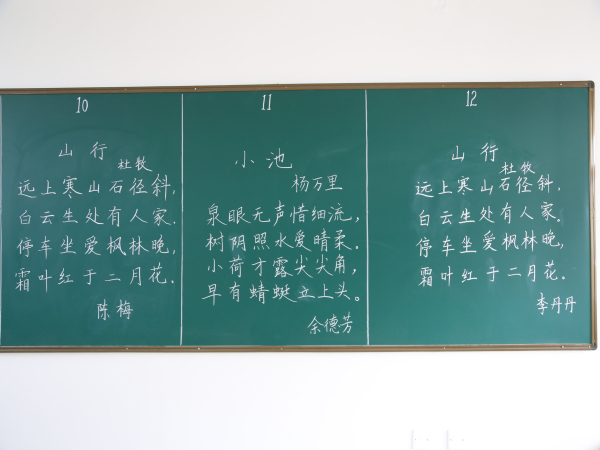 10
山行
杜牧
远上寒山石径斜,
白云生处有人家.
停车坐爱枫林晚,
霜叶红于二月花.
陈梅
11
小池
杨万里
泉眼无声惜细流,
树阴照水爱晴柔.
小荷才露尖尖角,
早有蜻蜓立上头。
余德芳
12
山行
杜牧
远上寒山石径斜.
白云生处有人家.
停车坐爱枫林晚,
霜叶红于二月花.
李丹丹